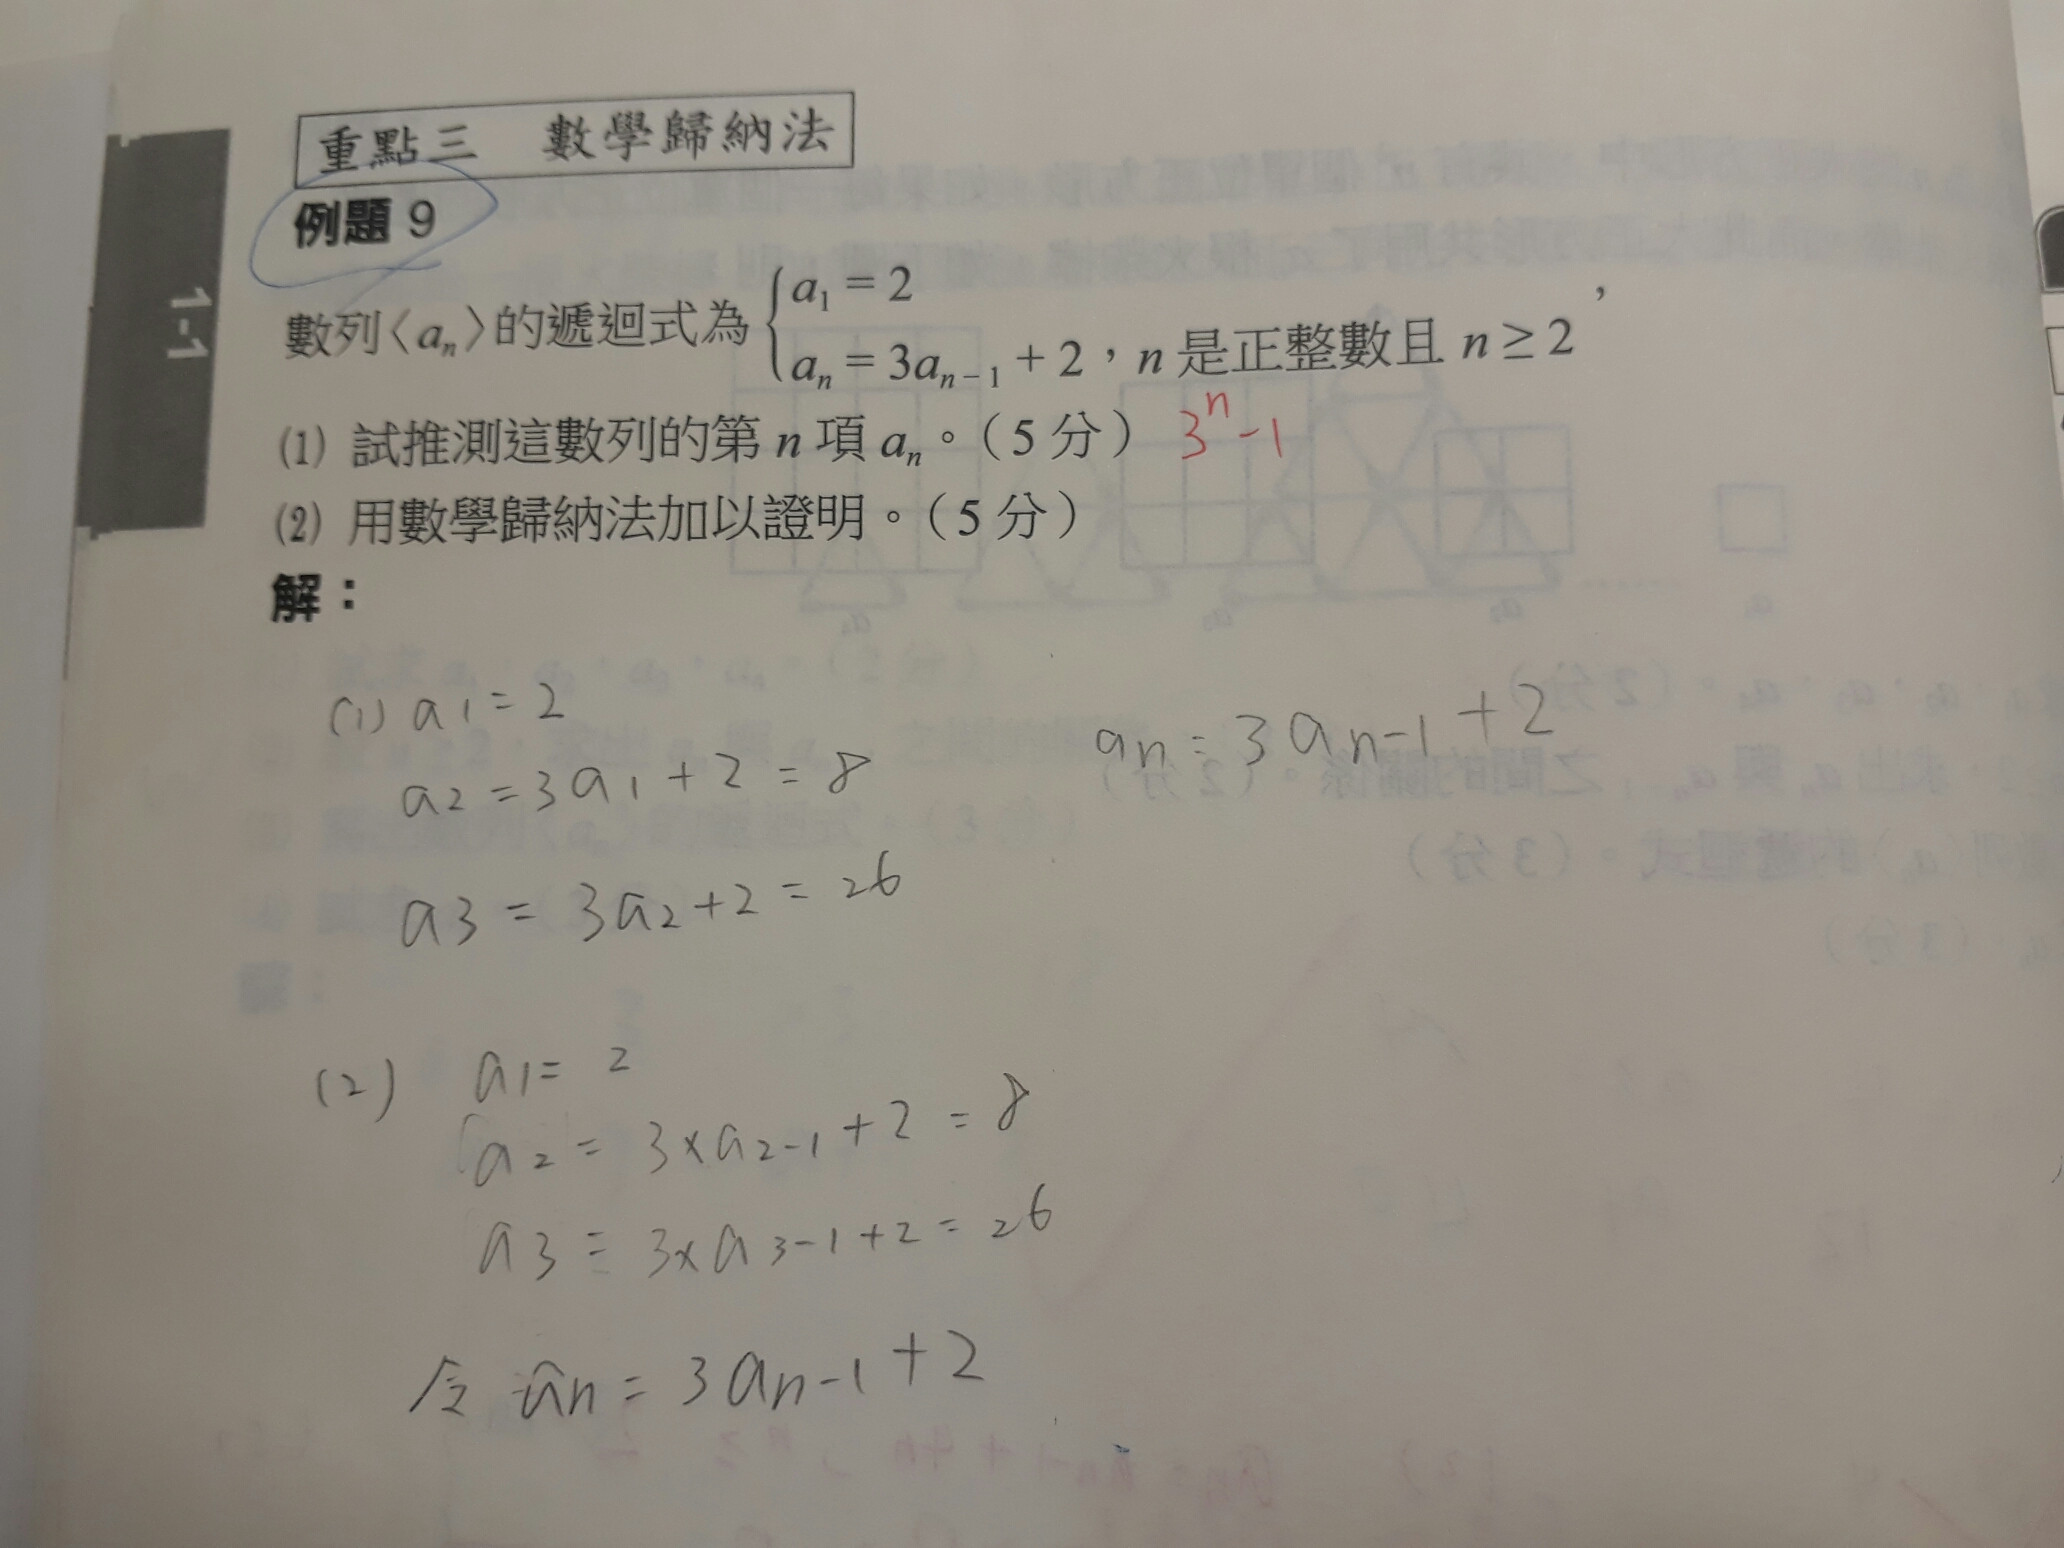 重點三 數學歸納法
例題 9
1-1
數列〈aₙ〉的遞迴式為 { a₁ = 2
aₙ = 3aₙ₋₁ + 2，n 是正整數且 n ≥ 2 ，
(1) 試推測這數列的第 n 項 aₙ。（5 分） 3ⁿ-1
(2) 用數學歸納法加以證明。（5 分）
解：
(1) a₁ = 2
aₙ = 3aₙ₋₁ + 2
a₂ = 3a₁ + 2 = 8
a₃ = 3a₂ + 2 = 26
(2) a₁ = 2
a₂ = 3×a₂₋₁ + 2 = 8
a₃ = 3×a₃₋₁ + 2 = 26
令 aₙ = 3aₙ₋₁ + 2